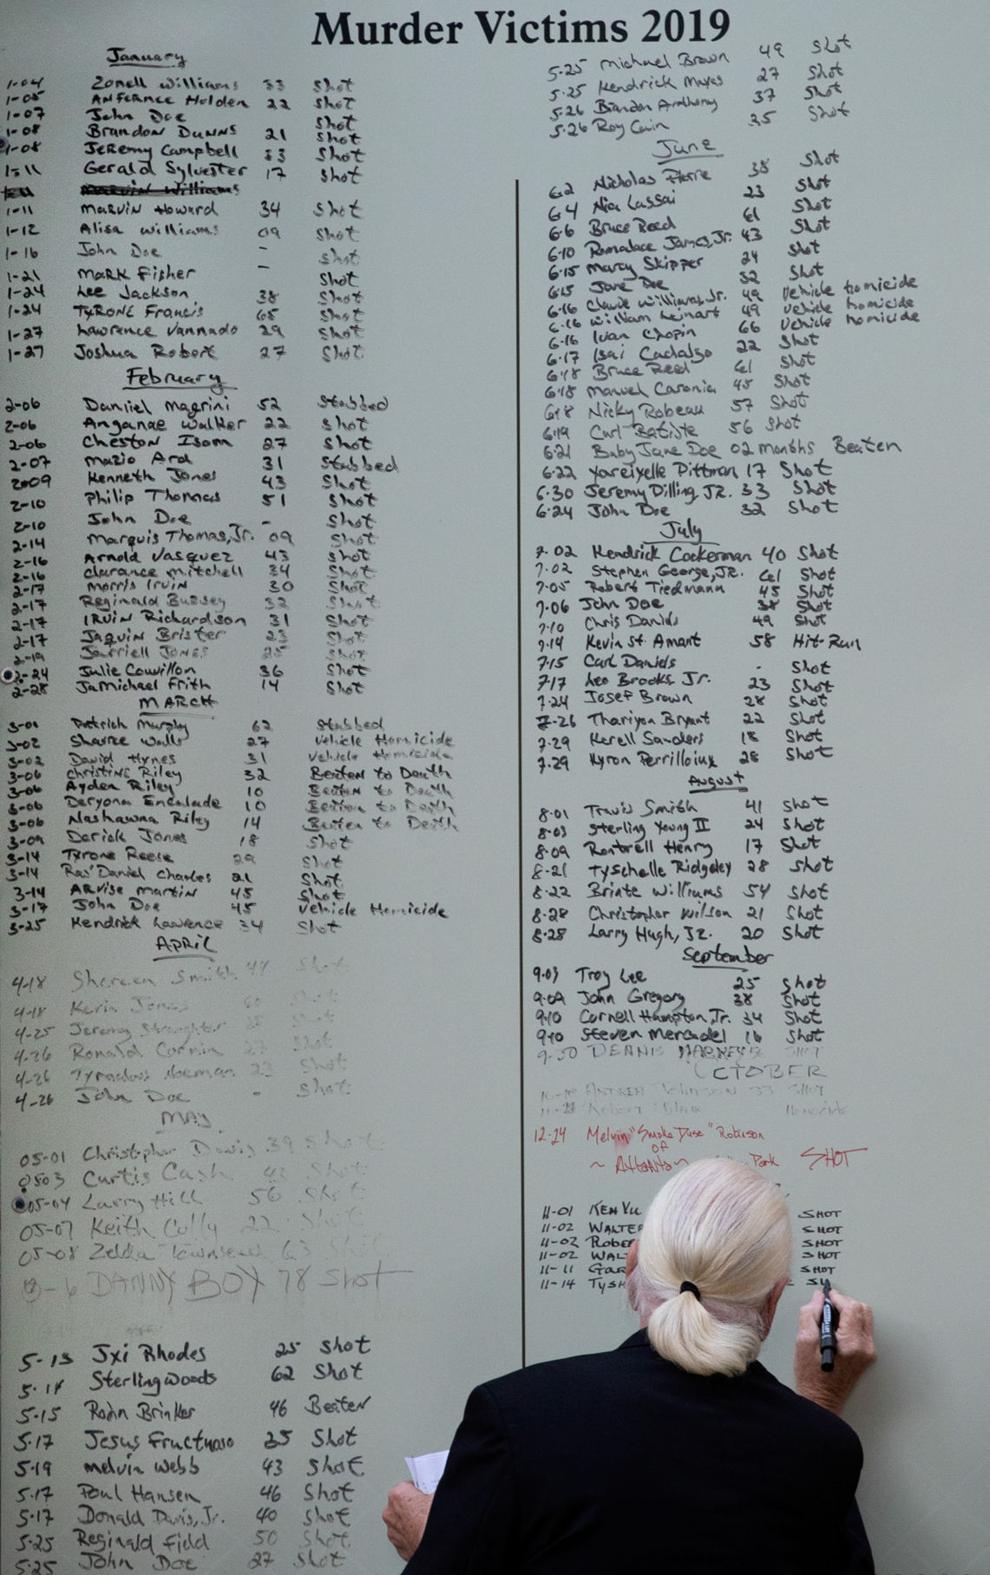 Murder Victims 2019
January
1-04 Zonell Williams 33 Shot
1-05 Anfernee Holden 22 Shot
1-07 John Doe Shot
1-08 Brandon Dunns 21 Shot
1-08 Jeremy Campbell 33 Shot
1-11 Gerald Sylvester 17 Shot
Marvin Williams
1-11 Marvin Howard 34 Shot
1-12 Alisa Williams 09 Shot
1-16 John Doe - Shot
1-21 Mark Fisher - Shot
1-24 Lee Jackson 38 Shot
1-24 Tyrone Francis 65 Shot
1-27 Lawrence Vannado 29 Shot
1-27 Joshua Robert 27 Shot
February
2-06 Daniiel Magrini 52 Stabbed
2-06 Anganae Walker 22 Shot
2-06 Cheston Isom 27 Shot
2-07 Mazio Ard 31 Stabbed
2-09 Kenneth Jones 43 Shot
2-10 Philip Thomas 51 Shot
2-10 John Doe - Shot
2-14 Marquis Thomas, Jr. 09 Shot
2-16 Arnold Vasquez 43 Shot
2-16 Clarance Mitchell 34 Shot
2-17 Morris Irvin 30 Shot
2-17 Reginald Bussey 32 Shot
2-17 Irvin Richardson 31 Shot
2-17 Jaquin Brister 23 Shot
2-19 Jarriell Jones 25 Shot
2-24 Julie Couvillon 36 Shot
2-28 JaMichael Frith 14 Shot
MARCH
3-01 Patrick Murphy 62 Stabbed
3-02 Sharee Walls 27 Vehicle Homicide
3-02 David Hynes 31 Vehicle Homicide
3-06 Christine Riley 32 Beaten to Death
3-06 Ayden Riley 10 Beaten to Death
3-06 Deryona Encalade 10 Beaten to Death
3-06 Nashawna Riley 14 Beaten to Death
3-09 Derick Jones 18 Shot
3-14 Tyrone Reese 29 Shot
3-14 Ras'Daniel Charles 21 Shot
3-14 Arvise Martin 45 Shot
3-17 John Doe 45 Vehicle Homicide
3-25 Kendrick Lawrence 34 Shot
April
4-18 Shareen Smith 44 Shot
4-18 Kevin Jones 60 Shot
4-25 Jeremy Straughter Shot
4-26 Ronald Cormin 27 Shot
4-26 Norman 23 Shot
4-26 John Doe - Shot
MAY
05-01 Christopher Davis 39 Shot
0503 Curtis Cash 42 Shot
05-04 Larry Hill 56 Shot
05-07 Keith Cully 22 Shot
05-08 Zelda Townsend 63 Shot
DANNY BOY 78 Shot
5-13 Jxi Rhodes 25 Shot
5-14 Sterling woods 62 Shot
5-15 Robin Brinker 46 Beaten
5-17 Jesus Fructuoso 35 Shot
5-19 Melvin Webb 43 Shot
5-17 Paul Hansen 46 Shot
5-17 Donald Davis, Jr. 40 Shot
5-25 Reginald Field 50 Shot
5-25 John Doe 27 Shot
5-25 Michael Brown 49 Shot
5-25 Kendrick Mayes 27 Shot
5-26 Brandon Anthony 37 Shot
5-26 Roy Cain 35 Shot
June
6-2 Nicholas Pierre 38 Shot
6-4 Nia Lassai 23 Shot
6-6 Bruce Reed 61 Shot
6-10 Romalace James, Jr. 43 Shot
6-15 Marcy Skipper 24 Shot
6-15 Jane Doe 32 Shot
6-16 Claude Williams, Jr. 49 Vehicle homicide
6-16 William Leinart 49 Vehicle homicide
6-16 Ivan Chopin 66 Vehicle homicide
6-17 Isai Cadalzo 22 Shot
6-18 Bruce Reed 61 Shot
6-18 Manuel Caronia 45 Shot
6-18 Nicky Robeau 57 Shot
6-19 Carl Batiste 56 Shot
6-21 Baby Jane Doe 02 months Beaten
6-22 Yareiyelle Pittman 17 Shot
6-30 Jeremy Dilling, JR. 33 Shot
6-24 John Doe 32 Shot
July
7-02 Kendrick Cockerman 40 Shot
7-02 Stephen George, JR. 61 Shot
7-05 Robert Tiedmann 45 Shot
7-06 John Doe 38 Shot
7-10 Chris Daniels 49 Shot
7-14 Kevin St Amant 58 Hit-Run
7-15 Carl Daniels - Shot
7-17 Leo Brooks Jr. 23 Shot
7-24 Josef Brown 28 Shot
7-26 Thariyon Bryant 22 Shot
7-29 Kerell Sanders 18 Shot
7-29 Kyron Perrilloux 28 Shot
August
8-01 Travis Smith 41 Shot
8-03 Sterling Young II 24 Shot
8-09 Rontrell Henry 17 Shot
8-21 Tyschelle Ridgeley 28 Shot
8-22 Brinte Williams 54 Shot
8-28 Christopher Wilson 21 Shot
8-28 Larry Hugh, Jr. 20 Shot
September
9-03 Troy Lee 25 Shot
9-09 John Gregory 38 Shot
9-10 Cornell Hampton, Jr. 34 Shot
9-10 Steven Mercadel 16 Shot
9-30 DENNIS SHOT
OCTOBER
ANDREA JOHNSON 33 SHOT
Robert Homicide
12-24 Melvin "Smoke Dose" Robinson
of
~ Park SHOT
11-01 SHOT
11-02 WALTER SHOT
11-02 SHOT
11-02 SHOT
11-11 SHOT
11-14